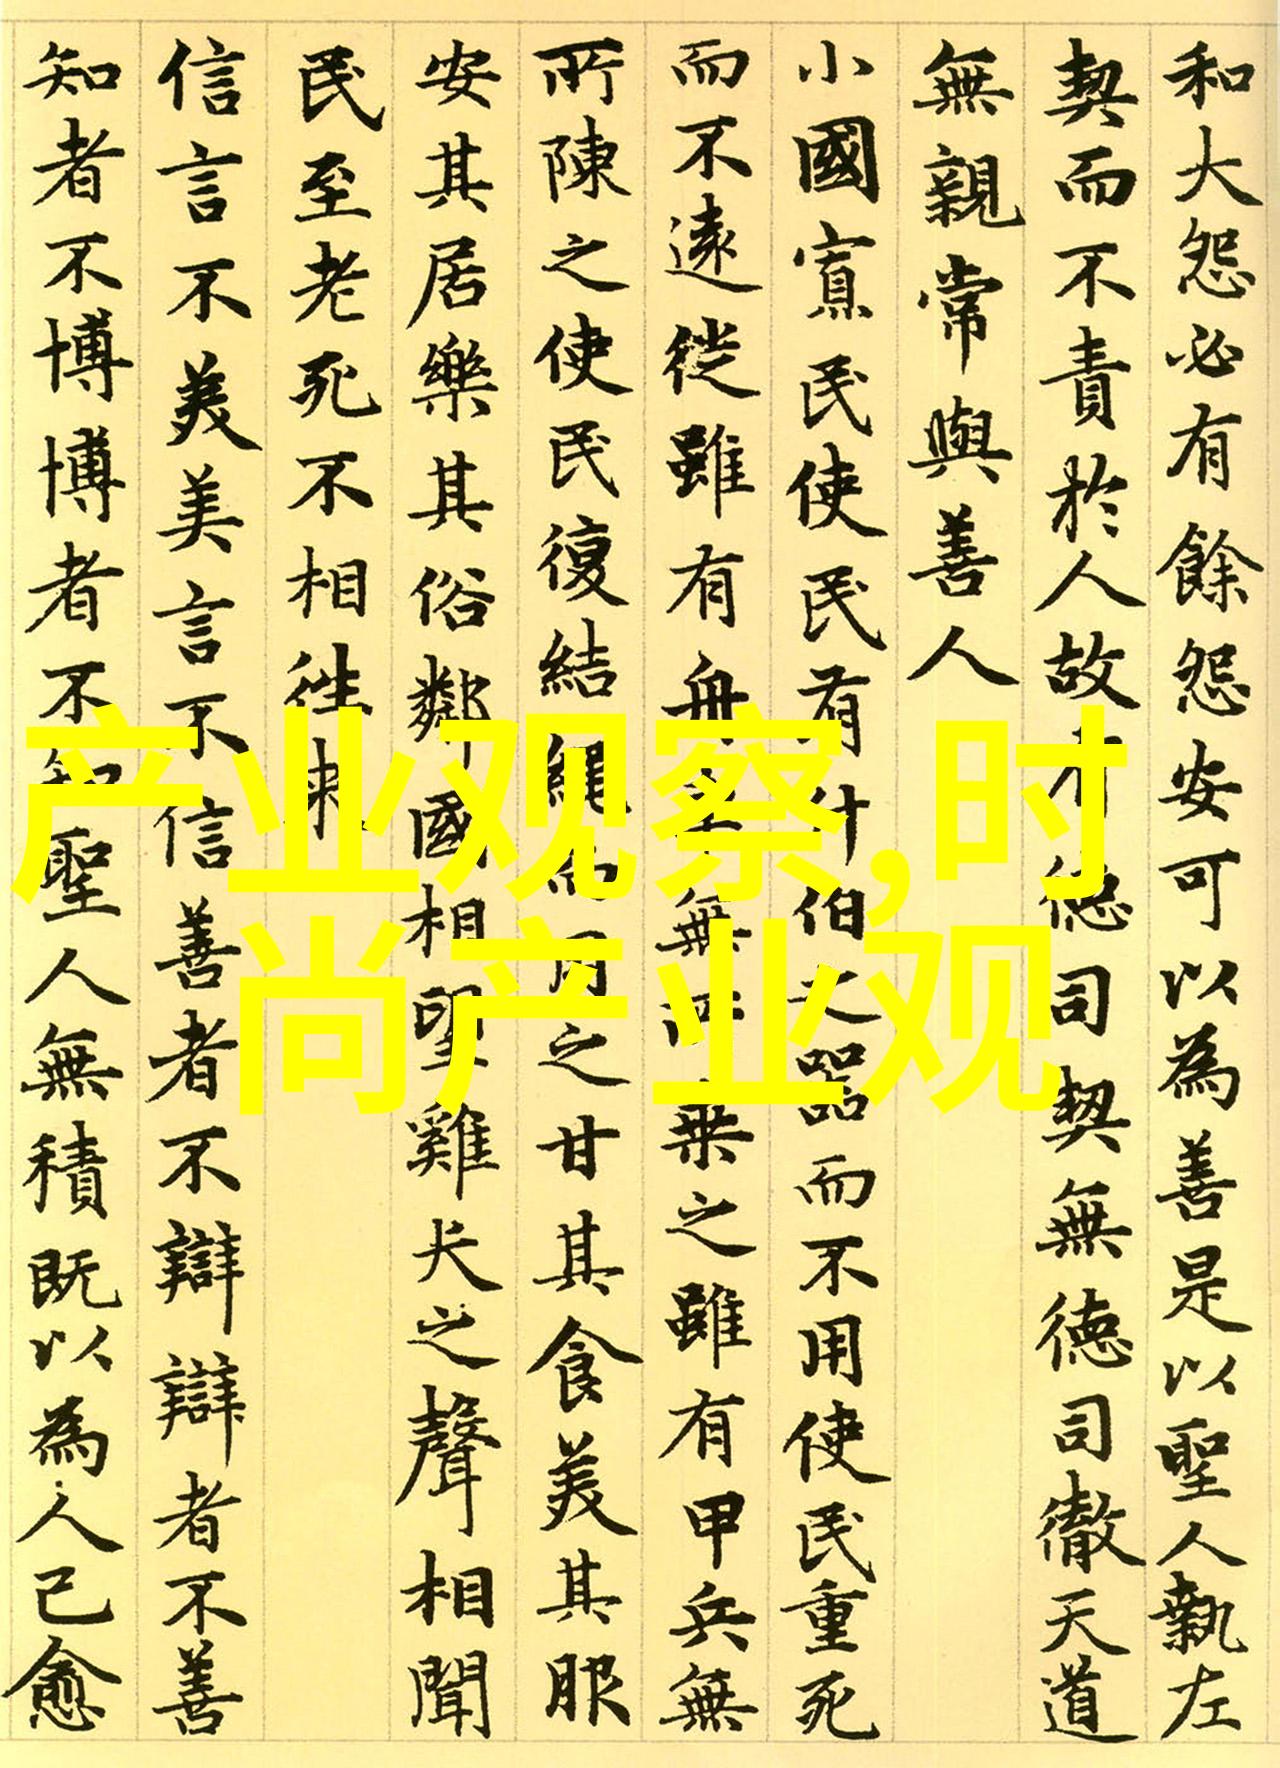 和大怨必有餘怨安可以為善是以聖人執左
契而不責於人故有德司契無德司徹天道
無親常與善人
小國寡民使民有什伯之器而不用使民重死
而不遠徙雖有舟無所乗之雖有甲兵無
所陳之使民復結繩而用之甘其食美其服
安其居樂其俗鄰國相望雞犬之聲相聞
民至老死不相往来
信言不美美言不信善者不辯辯者不善
知者不博博者不知聖人無積既以為人己愈
产业观察,时
尚产业观